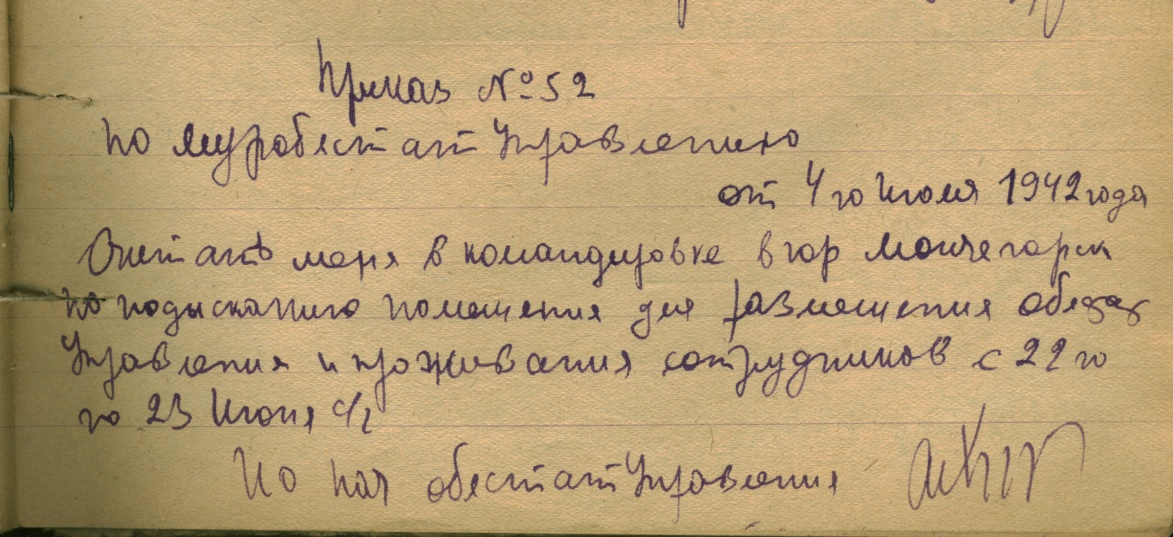 Приказ № 52
по Муробстат Управлению
от 4 го Июля 1942 года
Считать меня в командировке в гор Мончегорск
по подысканию помещения для размещения
Управления и проживания сотрудников с 22 го
по 23 Июня с/г
ИО нач облстатУправления